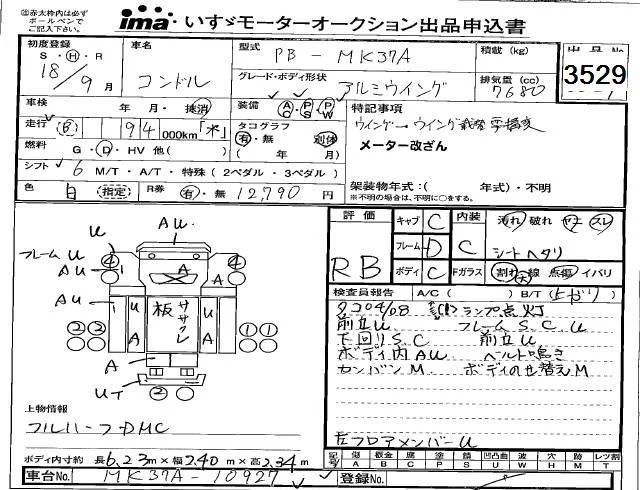 ㊟赤太枠内は必ず
ボールペンで
ご記入下さい。
ima・いすゞモーターオークション出品申込書
初度登録 S・H・R 18年9月
車名 コンドル
型式 PB-MK37A
グレード・ボディ形状 アルミウイング
積載(kg)
排気量(cc) 7680
出品No 3529
車検 年 月・抹消
装備 AC PS PW
特記事項
走行 194 000km「不」
タコグラフ 有・無 別体
ウイング→ウイング載替 要構変
メーター改ざん
燃料 G・D・HV 他( )
( 年 月)
シフト 6 M/T・A/T・特殊(2ペダル・3ペダル)
色 白(指定) R券 有・無 12,790円
架装物年式:( 年式)・不明
※不明の場合は、不明に○をする。
評価 RB
キャブ C
フレーム D
ボディ C
内装 C
汚れ 破れ ヤニ スレ
シートヘタリ
Fガラス 割れ 線 点傷 イバリ
検査員報告 A/C( ) B/T(ヒガリ)
タコ04/08 ランプ点灯
前立U フレームS.C.U
下回りS.C 前立U
ボディ内AU ベルト鳴き
カンバンM ボディのせ替えM
左フロアメンバーU
U
AU
U
フレームU
④ ④
AU A A
AU
U A 板 ササクレ U A
② ② ① ①
A A
Uイ
② ○
上物情報
フルハーフ DMC
ボディ内寸約 長6.23m×幅2.40m×高2.34m
記号 傷 板金 腐 塗 錆 凹凸曲 波 穴 跡 レツ割
A B C P S U W H M T
車台No. MK37A-10927
登録No.